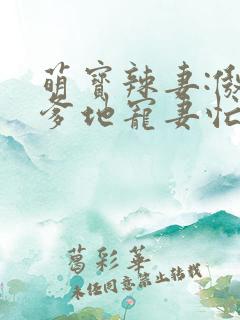 萌宝辣妻:傲
爹地宠妻忙
葛彩华
未经同意禁止转载